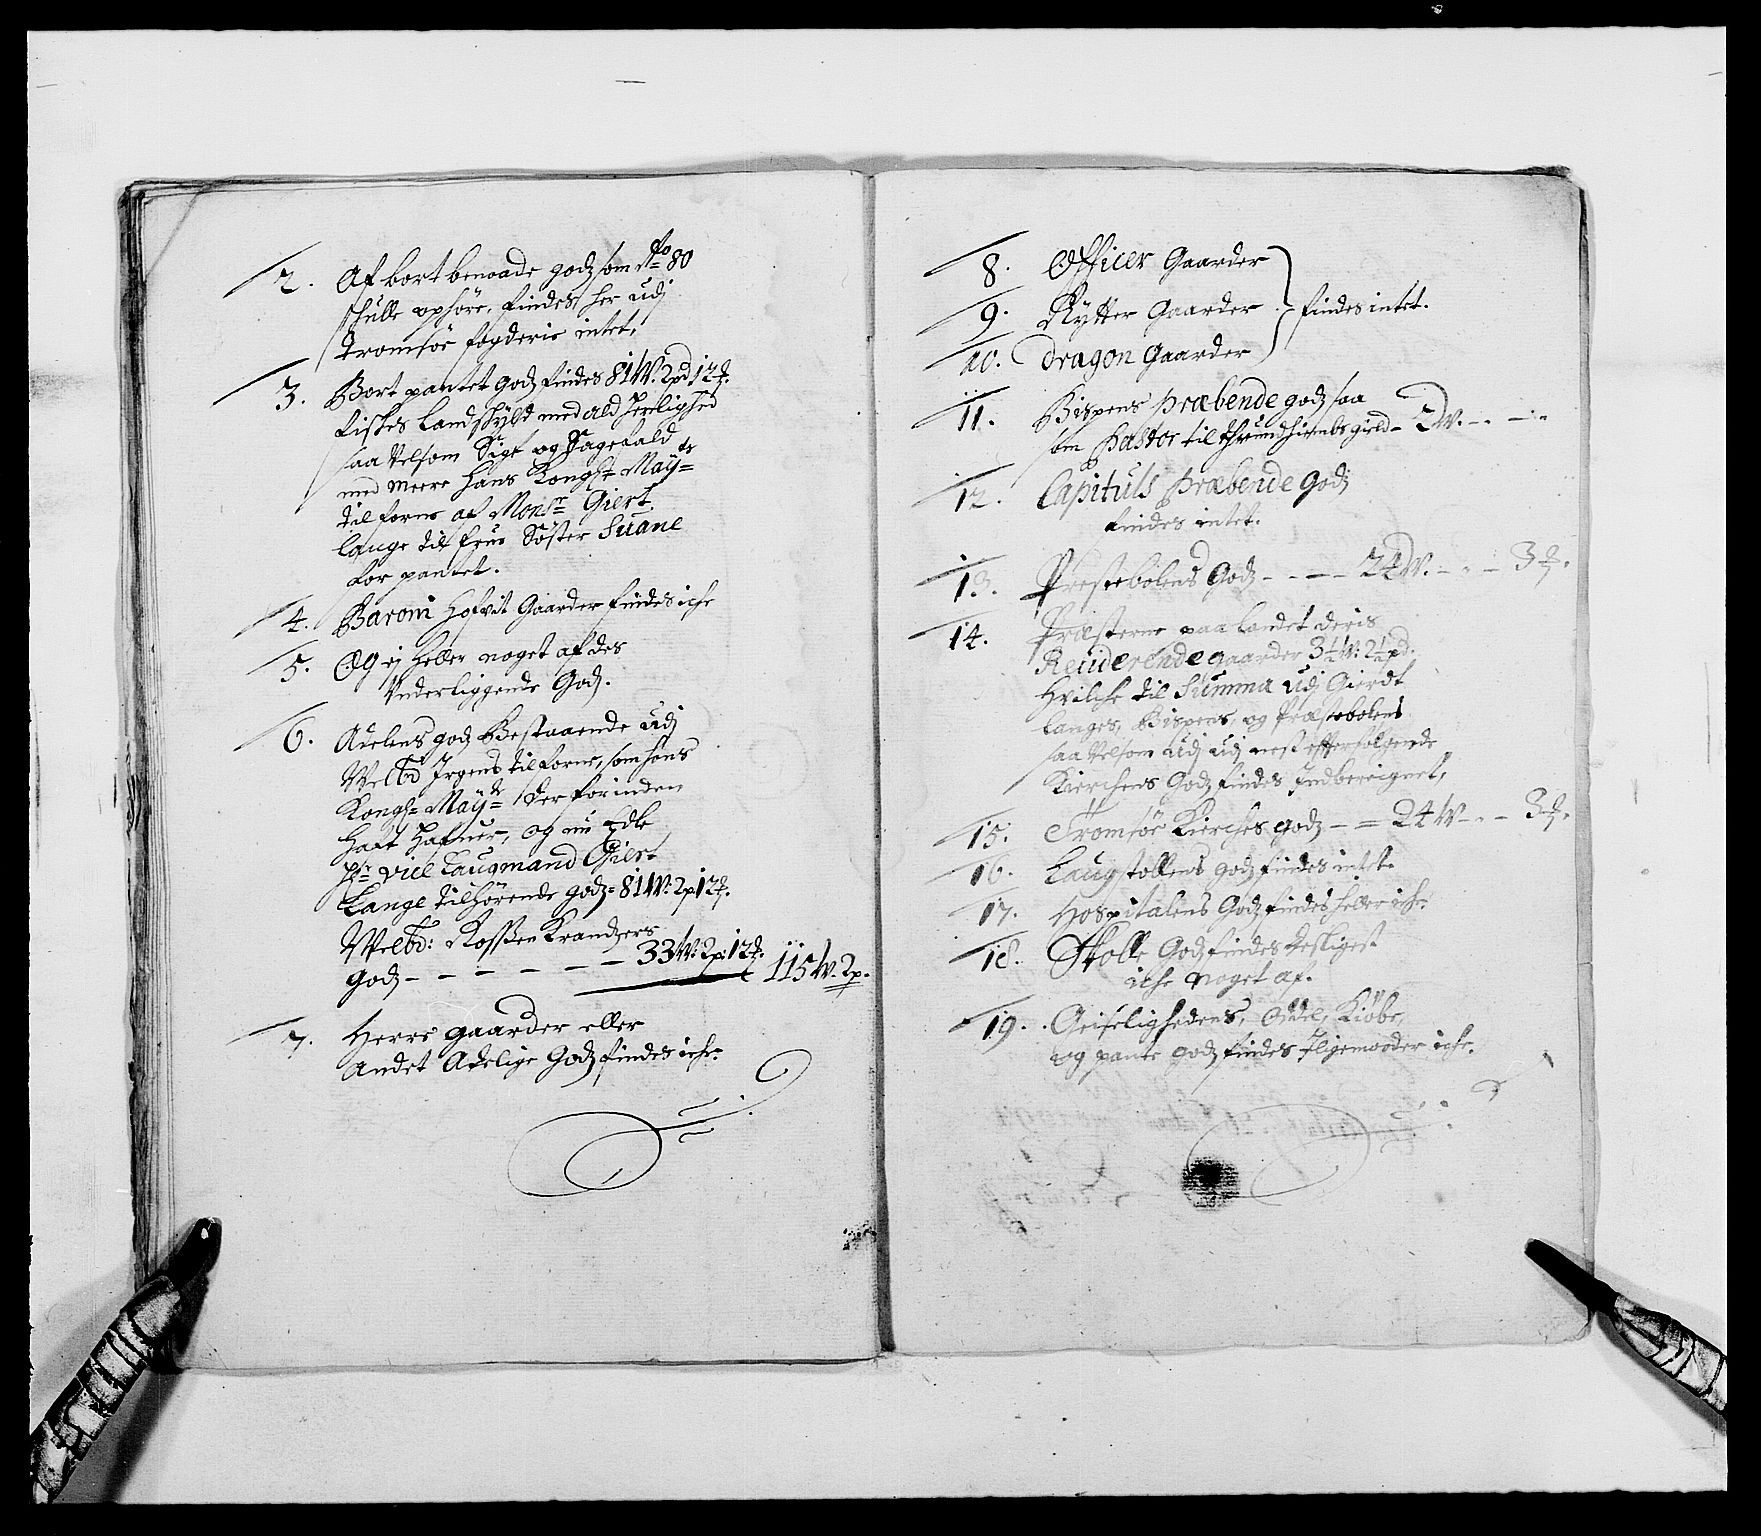 2. Af bort benaade godz som Ao 80
skulle ophöre, findes her udj
Tromsöe fogderie intet,
3. Bort pantet godz findes 81 W: 2 pd 12 ℔.
fiskes Landskyld med ald herlighed
saa velsom Sige og Sagefald
med meere hans Kongl: Maÿts
tilforne af Monsr Giert
Lange til frue Söster Suane
for pantet.
4. Baroni hofvit Gaarder findes iche
5. Og ej heller noget af des
Underliggende Godz.
6. Adelens godz Bestaaende udj
Welbd Irgens tilforne, som hans
Kongl: Maÿt der for inden
haft hafuer, og nu Edle
Hr: vice Laugmand Giert
Lange tilhörende godz = 81 W: 2 p 12 ℔.
Welbd: Krandzers
godz - - - - - - 33 W: 2 p: 12 ℔. 115 W. 2 p.
7. Herre gaarder eller
andet Adelige Godz findes iche
8. Officer Gaarder
9. Rytter Gaarder findes intet.
10. Dragon Gaarder
11. Bispens Præbende godz saa
som Pastor til gield - 2 W. - - -
12. Capituls Præbende Godz
findes intet.
13. Prestebolens Godz - - - - 24 W. - - - 3 ℔.
14. Præsterne paa landet deris
Reuiderende gaarder 3½ W: 2½ pd.
Hvilche til Summa udj Gierdt
Langes, Bispens, og Præstebolens
saa velsom udj udj nest efterfölgende
Kierchens Godz findes Indbereignet,
15. Tromsöe Kierches godz - = 24 W - - - 3 ℔.
16. Laugstollens godz findes intet
17. Hospitalens Godz findes heller iche
18. Skolle Godz findes desligest
iche noget af.
19. Geiselighedens, Oddel, Kiöbe,
og pante godz findes Iligemaader iche.